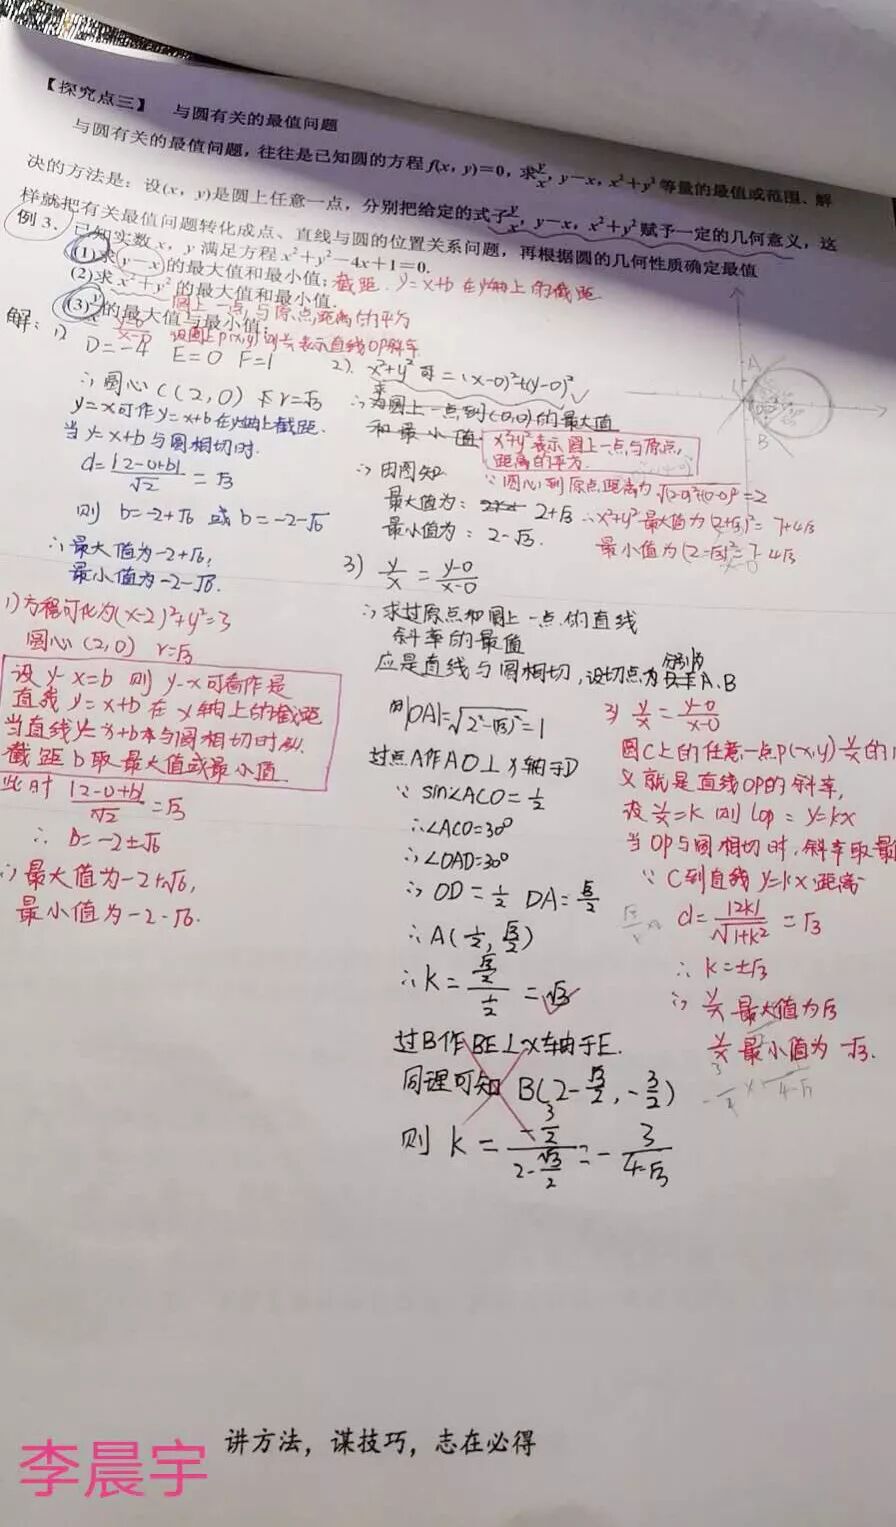 【探究点三】 与圆有关的最值问题
与圆有关的最值问题，往往是已知圆的方程 f(x, y)=0，求y/x, y－x, x²＋y²等量的最值或范围、解
决的方法是：设(x, y)是圆上任意一点，分别把给定的式子y/x, y－x, x²＋y²赋予一定的几何意义，这
样就把有关最值问题转化成点、直线与圆的位置关系问题，再根据圆的几何性质确定最值
例 3. 已知实数 x, y 满足方程 x²＋y²－4x＋1=0.
(1)求(y－x)的最大值和最小值; 截距. y=x+b 在y轴上的截距
(2)求 x²＋y² 的最大值和最小值.
圆上一点与原点距离的平方
(3)y/x的最大值与最小值;
y-0/x-0 设圆上P(x,y) 则y/x表示直线OP斜率
解: 1)
D=-4 E=0 F=1
∴圆心C(2,0) r=√3
y-x可作y=x+b在y轴上截距.
当y=x+b与圆相切时.
d=|2-0+b|/√2=√3
则 b=-2+√6 或 b=-2-√6
∴最大值为-2+√6,
最小值为-2-√6.
1)方程可化为(x-2)²+y²=3
圆心(2,0) r=√3
设y-x=b 则 y-x可看作是
直线y=x+b在y轴上的截距
当直线y=x+b与圆相切时,
截距b取最大值或最小值
此时 |2-0+b|/√2=√3
∴ b=-2±√6
∴最大值为-2+√6,
最小值为-2-√6.
2). x²+y² 可=(x-0)²+(y-0)²
∴为圆上一点到(0,0)的最大值
和最小值
x²+y²表示圆上一点与原点,
距离的平方.
∵圆心到原点距离为√(2-0)²+(0-0)²=2
∴由图知
最大值为: 2+√3
最小值为: 2-√3.
∴x²+y²最大值为(2+√3)²=7+4√3
最小值为(2-√3)²=7-4√3
3) y/x=y-0/x-0
∴求过原点和圆上一点的直线
斜率的最值
应是直线与圆相切,设切点为分别为A.B
则|OA|=√2²-(√3)²=1
过点A作AD⊥x轴于D
∵ sin∠ACO=1/2
∴∠ACO=30°
∴∠OAD=30°
∴ OD=1/2 DA=√3/2
∴A(1/2,√3/2)
∴k=√3/2/1/2=√3
过B作BE⊥x轴于E.
同理可知 B(2-√3/2,-3/2)
则 k=-3/2/2-√3/2=-3/4-√3
3) y/x=y-0/x-0
圆C上的任意一点P(x,y) y/x的
义就是直线OP的斜率,
设y/x=k 则 lop: y=kx
当OP与圆相切时,斜率取最
∵ C到直线y=kx距离
d=|2k|/√1+k²=√3
∴ k=±√3
∴ y/x最大值为√3
y/x最小值为-√3.
A
B
讲方法，谋技巧，志在必得
李晨宇